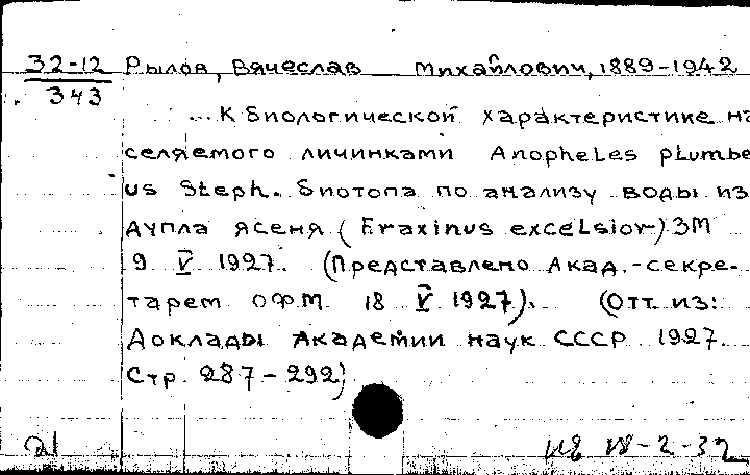 32-12 Рылов, Вячеслав Михайлович, 1889-1942
343
... К биологической характеристике на
селяемого личинками Anopheles plumbe
us Steph. биотопа по анализу воды из
дупла ясеня (Fraxinus excelsior) ЗМ
9 V 1927. (Представлено Акад.-секре-
тарем ОФМ 18 V 1927). (Отт. из:
Доклады Академии наук СССР 1927.
Стр. 287-292)
21
-2-32